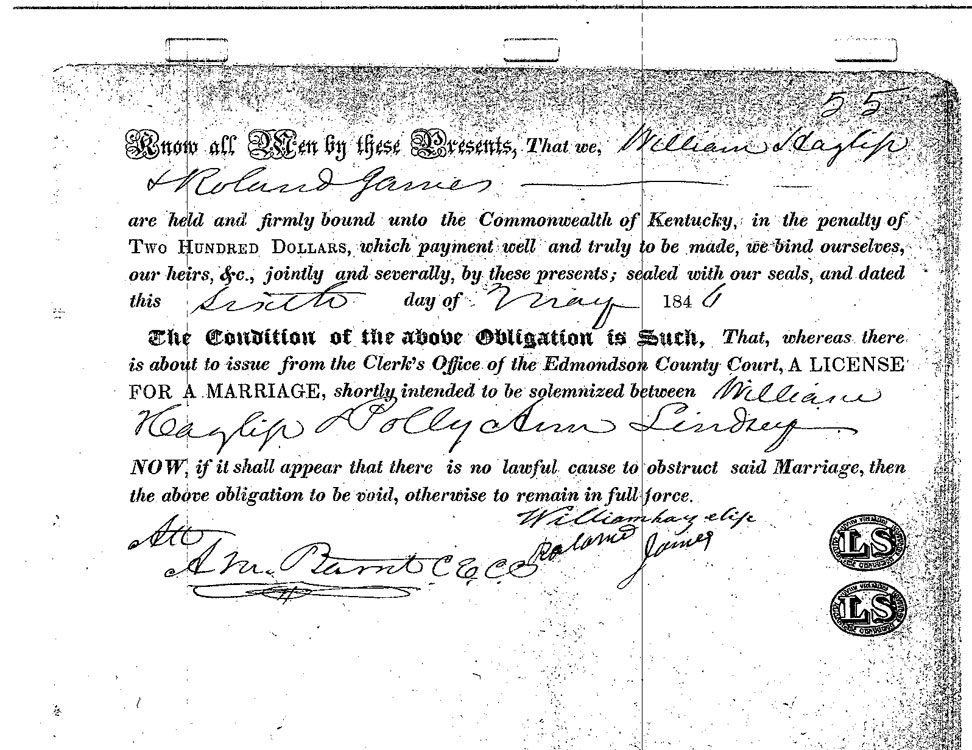 55
Know all Men by these Presents, That we, William Hazlip
& Roland James
are held and firmly bound unto the Commonwealth of Kentucky, in the penalty of
TWO HUNDRED DOLLARS, which payment well and truly to be made, we bind ourselves,
our heirs, &c., jointly and severally, by these presents; sealed with our seals, and dated
this sixth day of May 1846
The Condition of the above Obligation is Such, That, whereas there
is about to issue from the Clerk's Office of the Edmondson County Court, A LICENSE
FOR A MARRIAGE, shortly intended to be solemnized between William
Hazlip & Polly Ann Lindsey
NOW, if it shall appear that there is no lawful cause to obstruct said Marriage, then
the above obligation to be void, otherwise to remain in full force.
William hazelip
Roland James
Att
A. M. C E C C
LS
LS